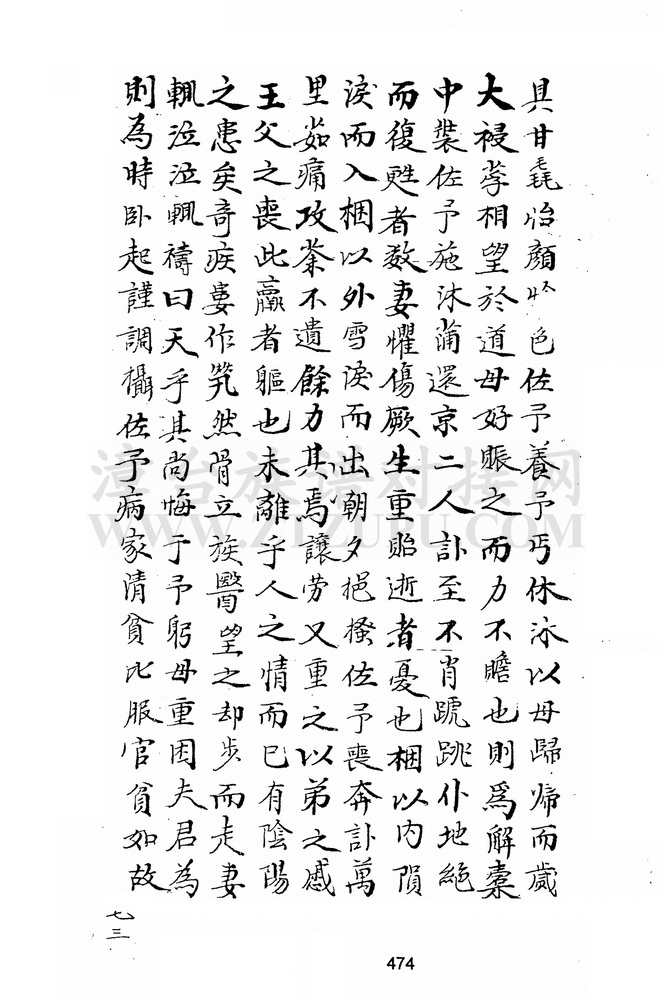 具甘毳怡顏悅色佐予養予丐休沐以母歸歸而歲
大祲莩相望於道母好賑之而力不贍也則為解橐
中裝佐予施沐蒲還京二人訃至不肖踉跳仆地絕
而復甦者数妻懼傷厥生重貽逝者憂也梱以內隕
淚而入梱以外雪淚而出朝夕挹搔佐予喪奔訃萬
里茹痛攻荼不遺餘力其焉讓劳又重之以弟之慼
王父之喪此羸者軀也未離乎人之情而已有陰陽
之患矣奇疾婁作煢然骨立族醫望之却步而走妻
輒泣泣輒禱曰天乎其尚悔于予躬母重困夫君為
則為時卧起謹調攝佐予病家清貧比服官貧如故
七三
474
漳台族谱对接网
WWW.ZTZUPU.COM